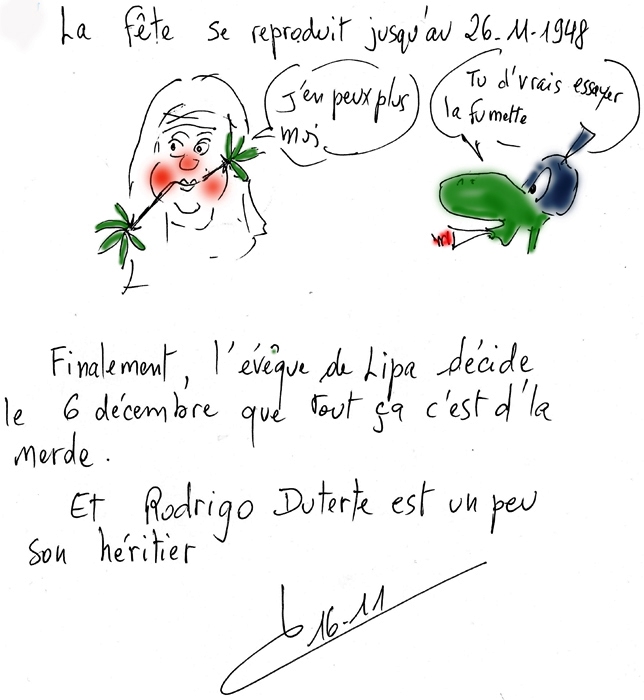 La fête se reproduit jusqu'au 26-11-1948
J'en peux plus
moi
Tu d'vrais essayer
la fumette
Finalement, l'évèque de Lipa décide
le 6 décembre que tout ça c'est d'la
merde.
Et Rodrigo Duterte est un peu
son héritier
16-11